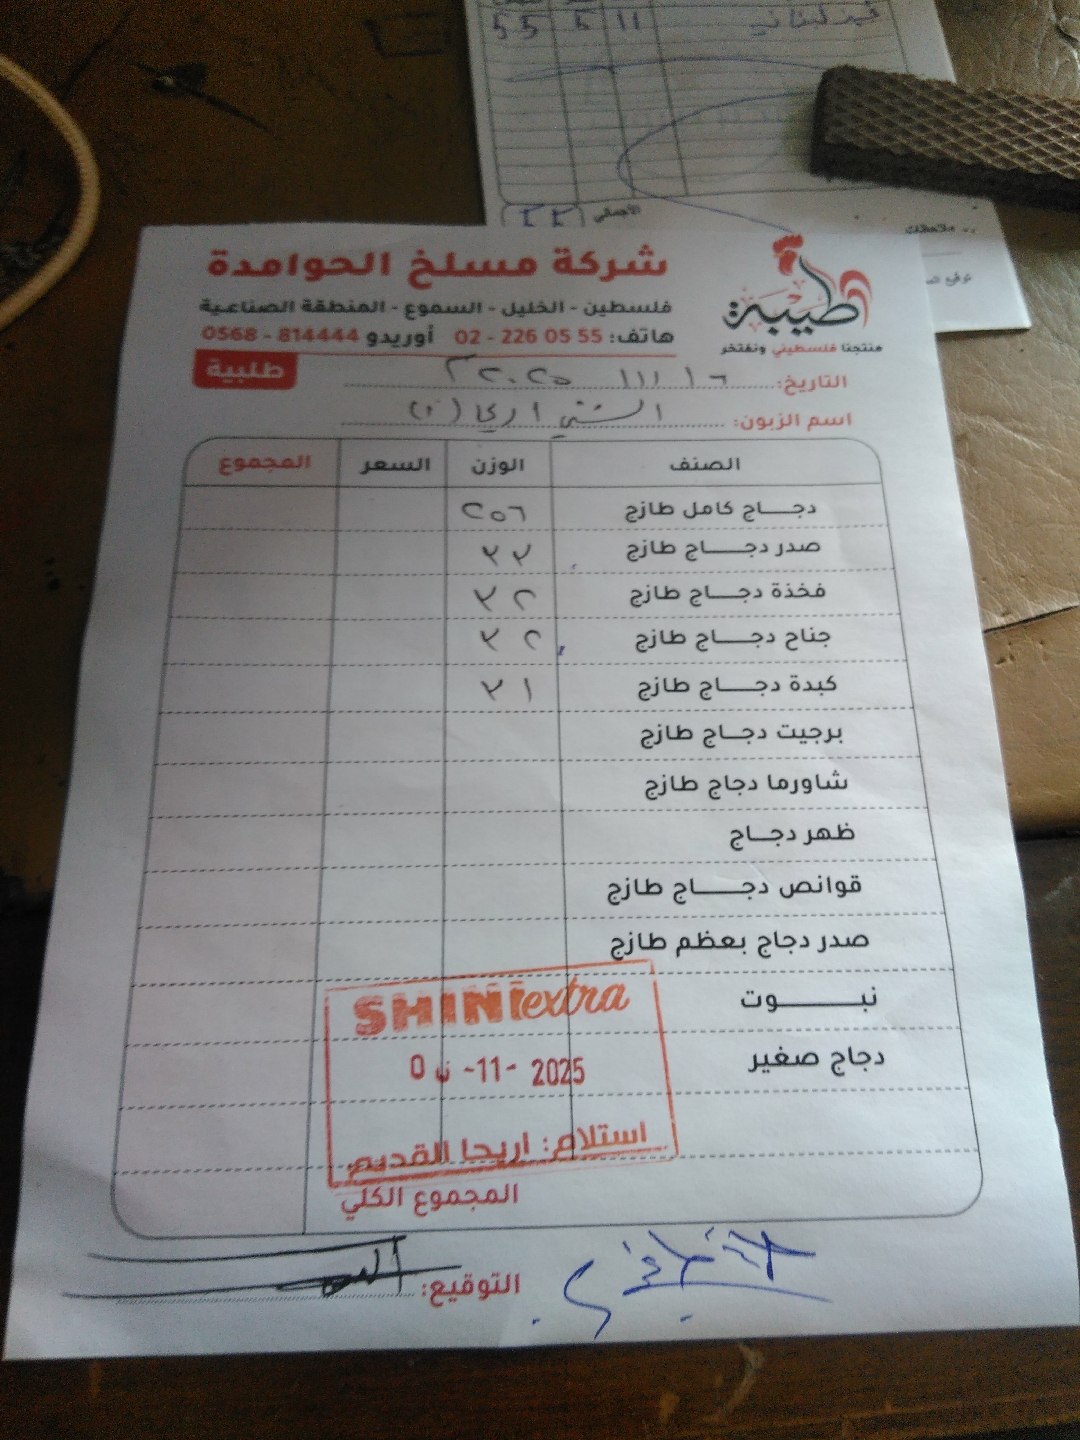 خبز لبناني 11 5 55
الأجمالي 55
ملاحظات
شركة مسلخ الحوامدة
فلسطين - الخليل - السموع - المنطقة الصناعية
هاتف: 02 - 226 05 55 أوريدو 0568 - 814444
طيبة
منتجنا فلسطيني ونفتخر
طلبية
التاريخ: ١٦ / ١١ / ٢٠٢٥
اسم الزبون: الشني اريحا
الصنف الوزن السعر المجموع
دجاج كامل طازج ٢٥٦
صدر دجاج طازج ٣٣
فخذة دجاج طازج ٣٢
جناح دجاج طازج ٣٢
كبدة دجاج طازج ٣١
برجيت دجاج طازج
شاورما دجاج طازج
ظهر دجاج
قوانص دجاج طازج
صدر دجاج بعظم طازج
نبوت
دجاج صغير
SHINI extra
-11- 2025
استلام: اريحا القديم
المجموع الكلي
التوقيع: